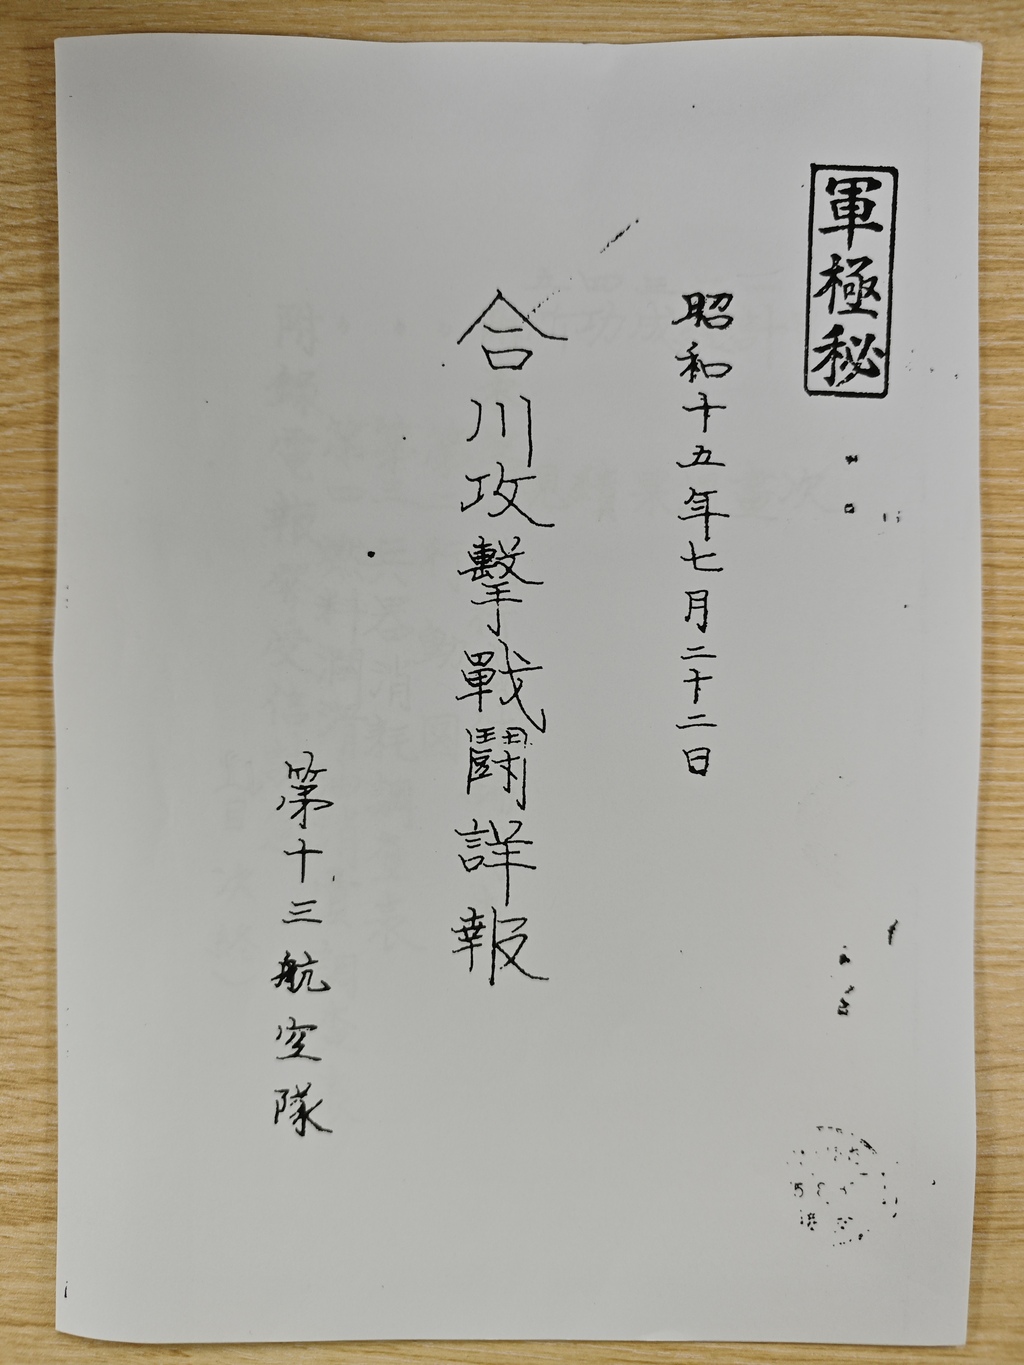 軍極秘
昭和十五年七月二十二日
合川攻擊戰鬪詳報
第十三航空隊